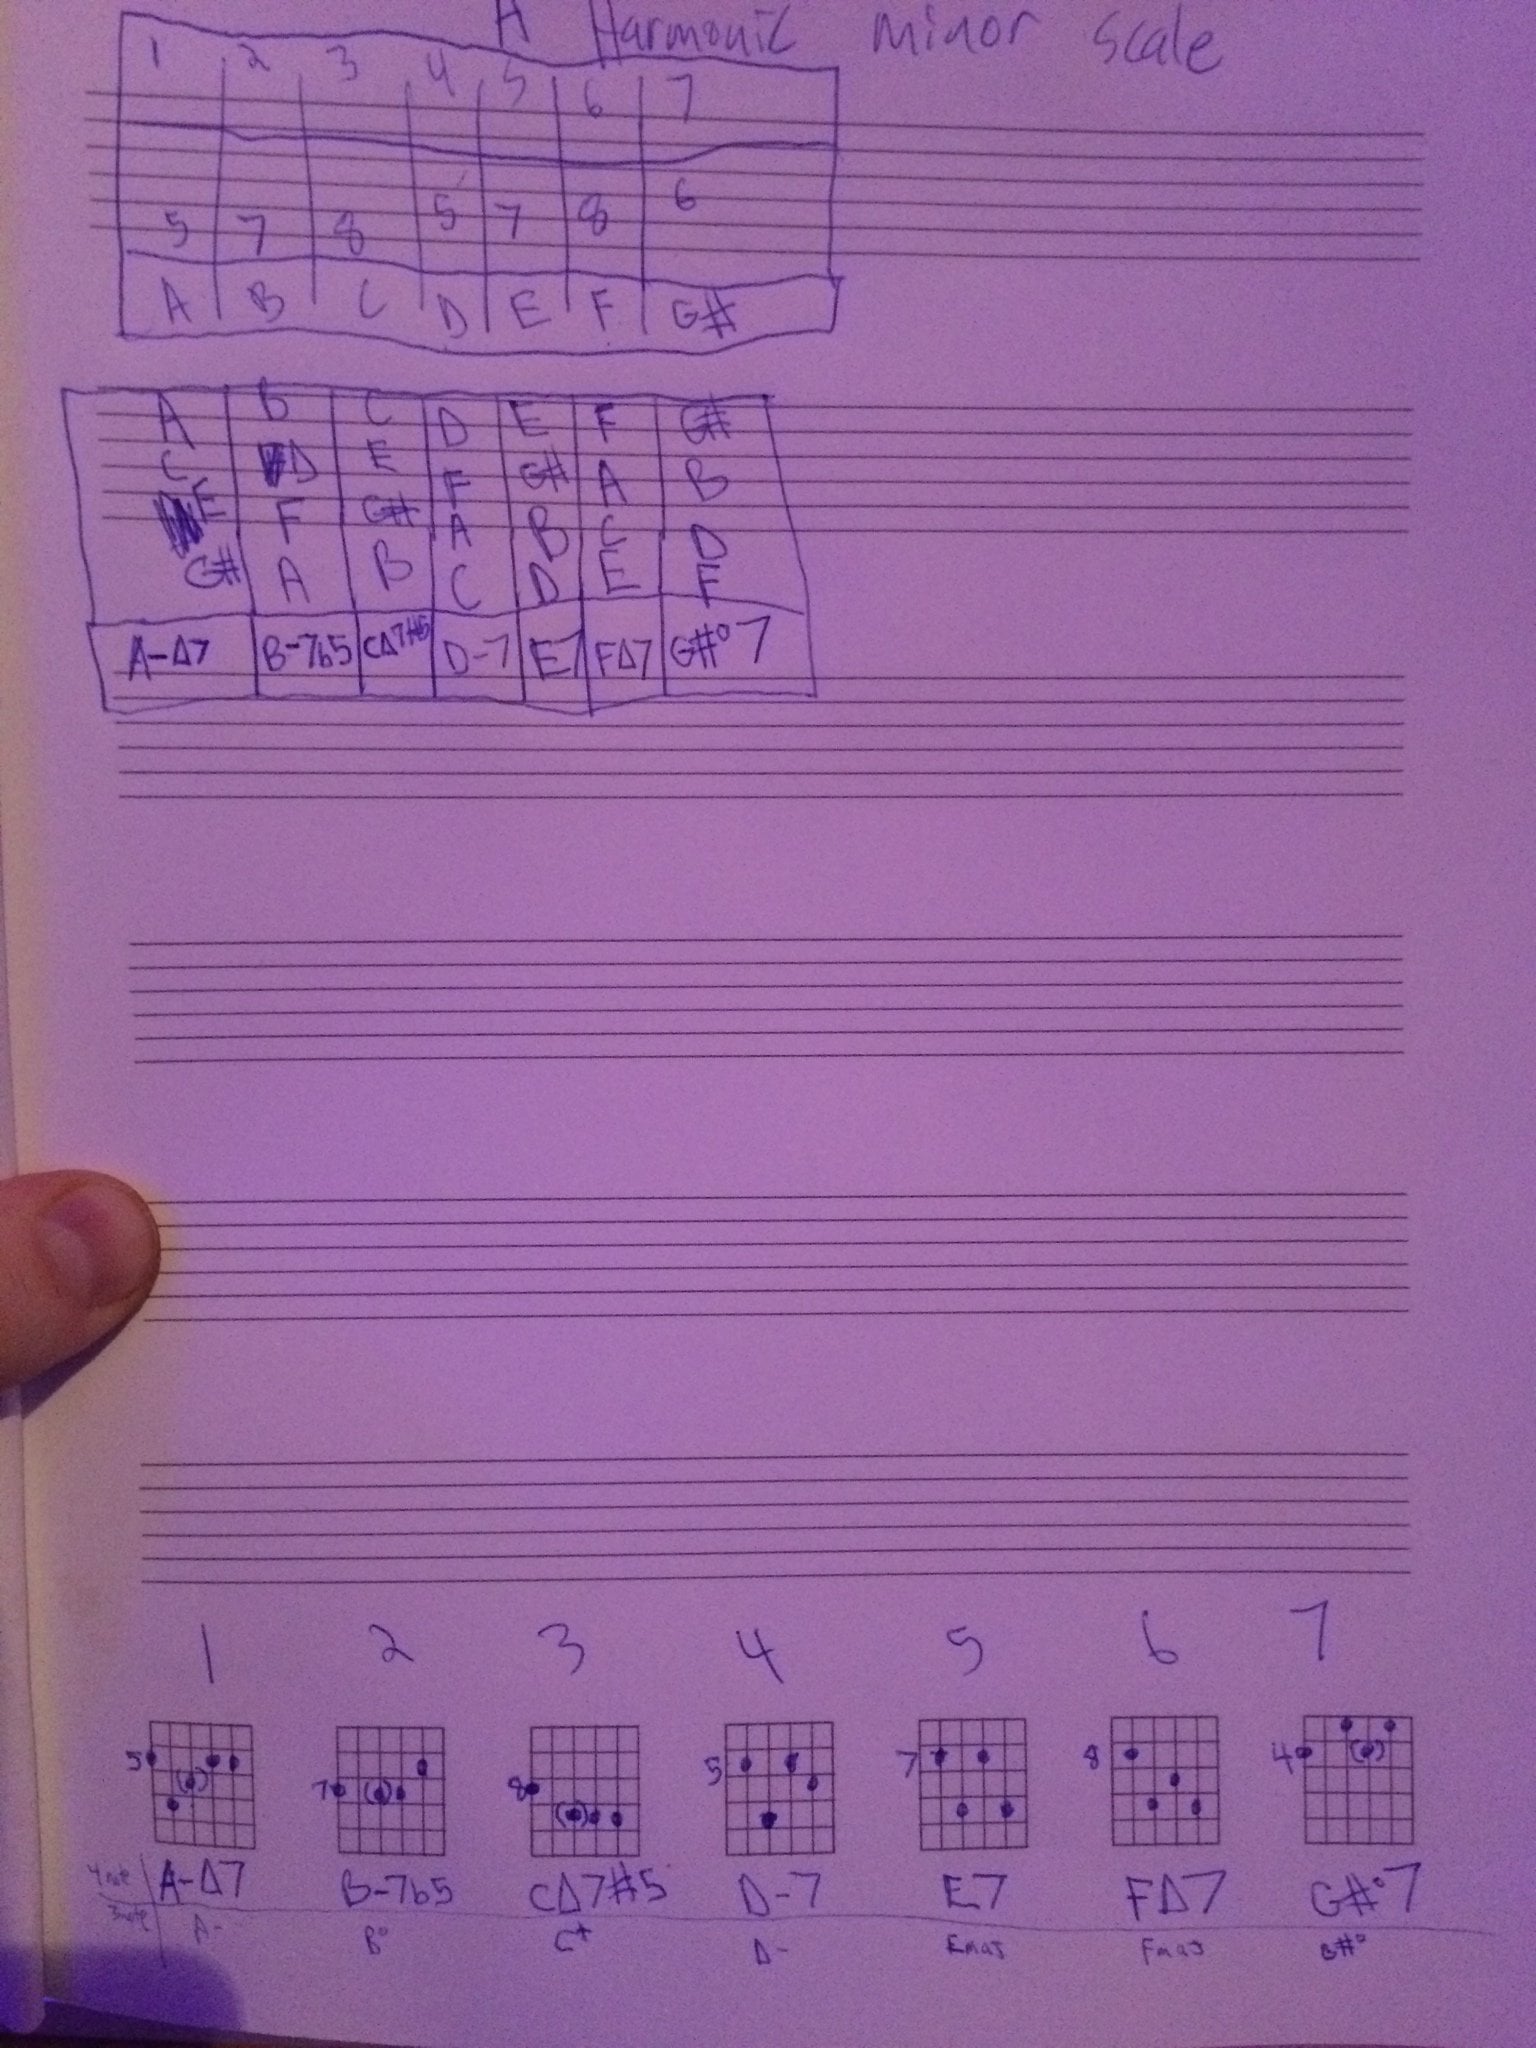 A Harmonic minor scale
1 2 3 4 5 6 7
5 7 8 5 7 8 6
A B C D E F G#
A B C D E F G#
C D E F G# A B
E F G# A B C D
G# A B C D E F
A-Δ7 B-7b5 CΔ7#5 D-7 E7 FΔ7 G#°7
1 2 3 4 5 6 7
5 7 8 5 7 8 4
4 note A-Δ7 B-7b5 CΔ7#5 D-7 E7 FΔ7 G#°7
3 note A- B° C+ D- Emaj Fmaj G#°